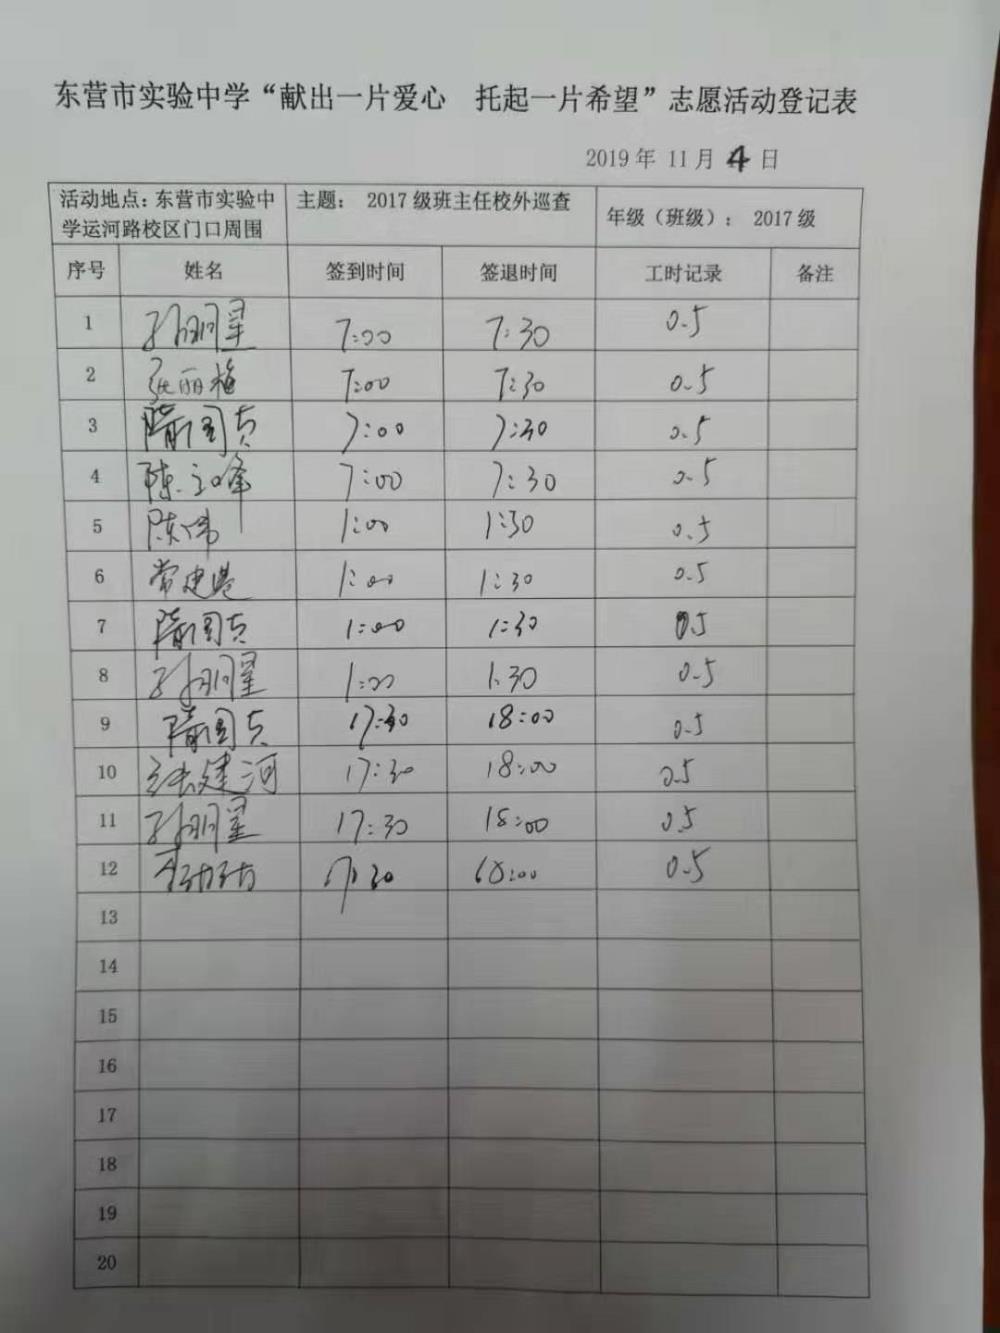 东营市实验中学“献出一片爱心 托起一片希望”志愿活动登记表
2019年 11月 4 日
活动地点：东营市实验中
学运河路校区门口周围
主题： 2017级班主任校外巡查
年级（班级）： 2017级
序号 姓名 签到时间 签退时间 工时记录 备注
1 孙明星 7:00 7:30 0.5
2 张丽梅 7:00 7:30 0.5
3 隋国贞 7:00 7:30 0.5
4 陈立峰 7:00 7:30 0.5
5 陈伟 1:00 1:30 0.5
6 常建 1:00 1:30 0.5
7 隋国贞 1:00 1:30 0.5
8 孙明星 1:00 1:30 0.5
9 隋国贞 17:30 18:00 0.5
10 张建河 17:30 18:00 0.5
11 孙明星 17:30 18:00 0.5
12 17:30 18:00 0.5
13
14
15
16
17
18
19
20